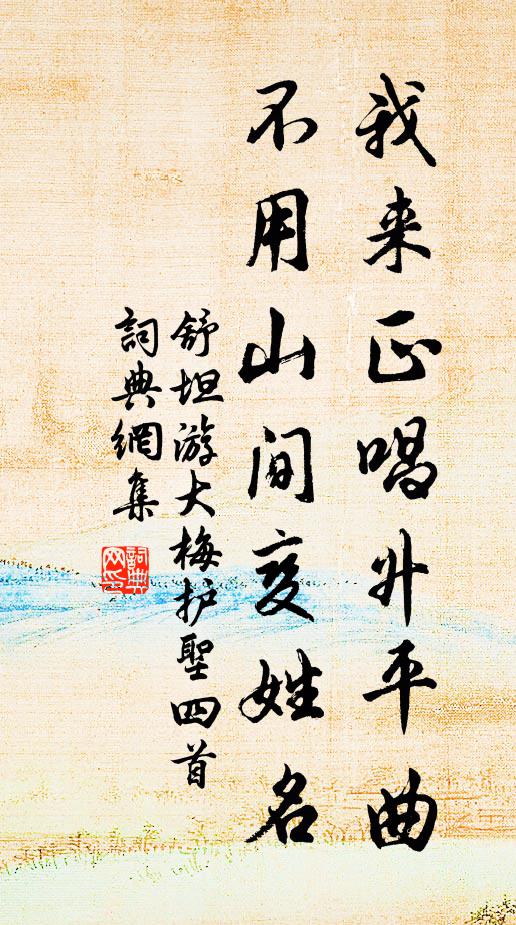 我来正唱升平曲
不用山间变姓名
舒坦游大梅护聖四首
詞典網集
詞典网印